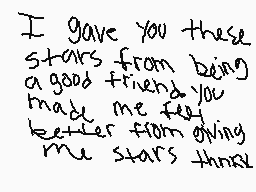 I gave you these
stars from being
a good friend. you
made me feel
better from giving
me stars